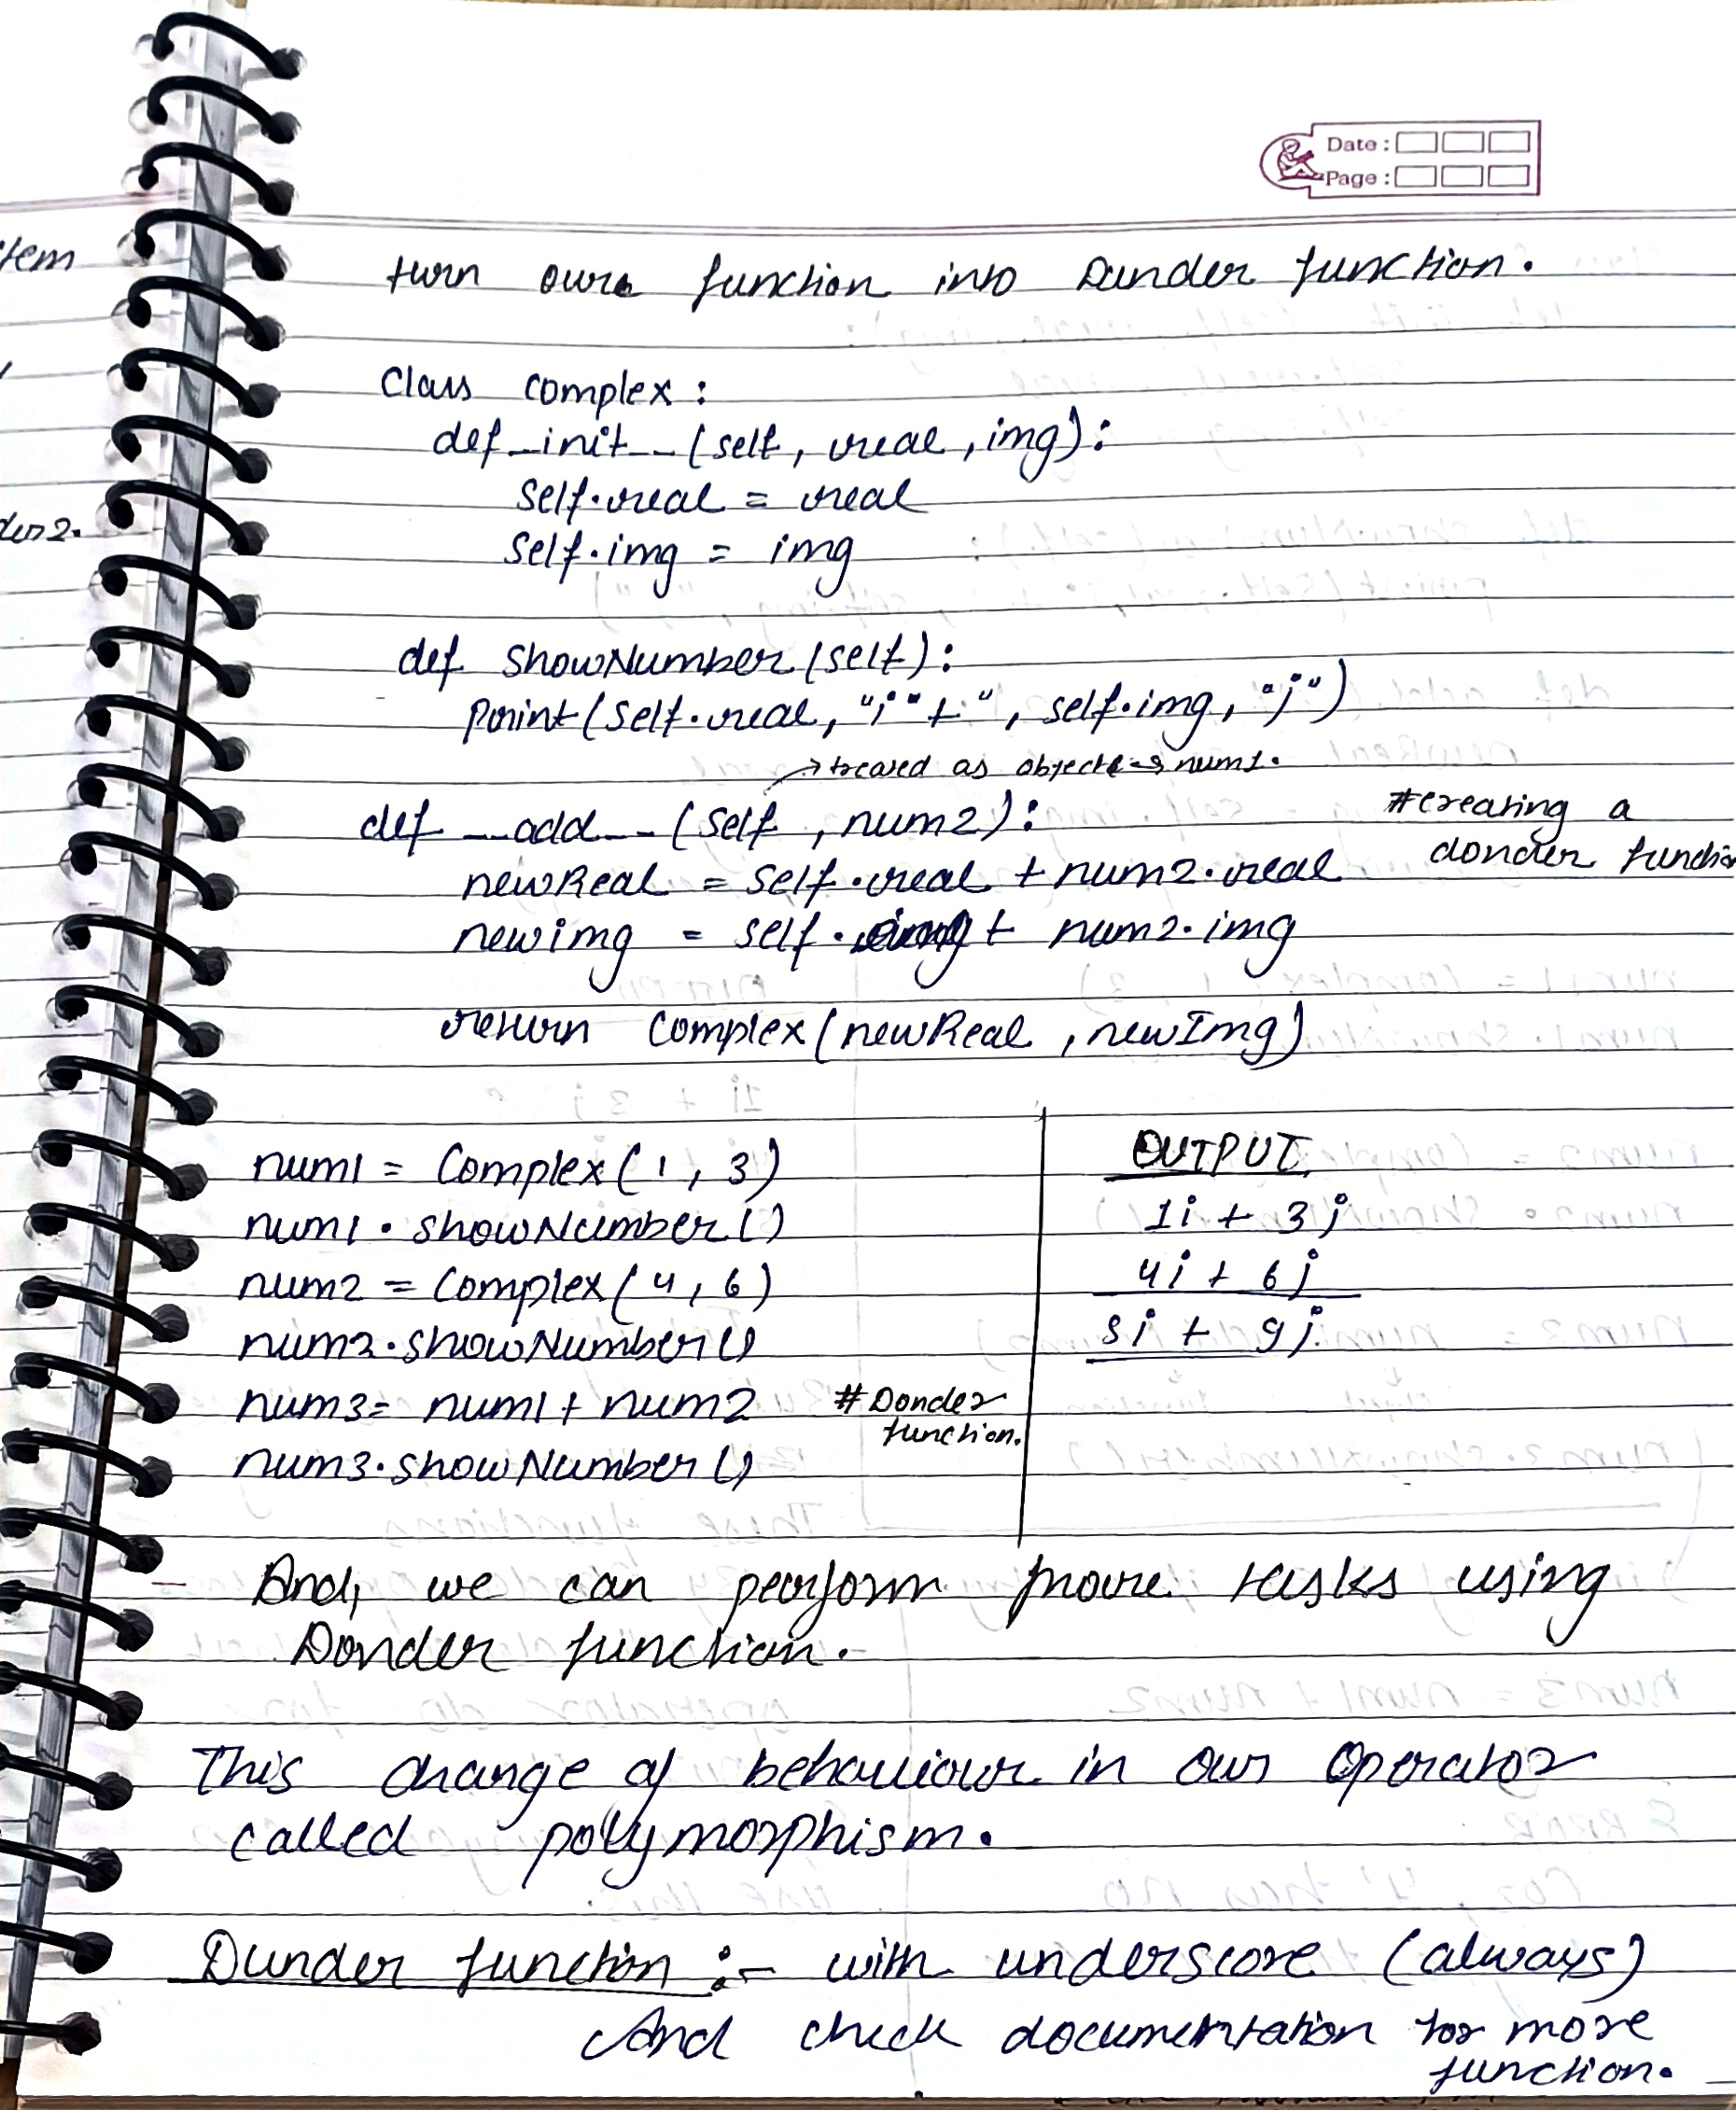 Date :
Page :
tem
turn our function into Dunder function.
Class Complex :
def _init_ _ (self, real, img):
self.real = real
der2.
self.img = img
def showNumber(self):
print(self.real, "i"+", self.img, "j")
→ treated as object → num1.
def __add__ (self, num2):
#creating a
donder function
newReal = self.real + num2.real
newimg = self.img + num2.img
return Complex(newReal, newImg)
num1 = Complex(1, 3)
num1.showNumber()
num2 = Complex(4, 6)
num2.showNumber()
num3 = num1 + num2 # Donder
function.
num3.showNumber()
OUTPUT
1i + 3j
4i + 6j
5i + 9j.
And, we can perform more tasks using
Donder function.
This change of behaviour in our operator
called polymorphism.
Dunder function :- with underscore (always)
And check documentation for more
function.